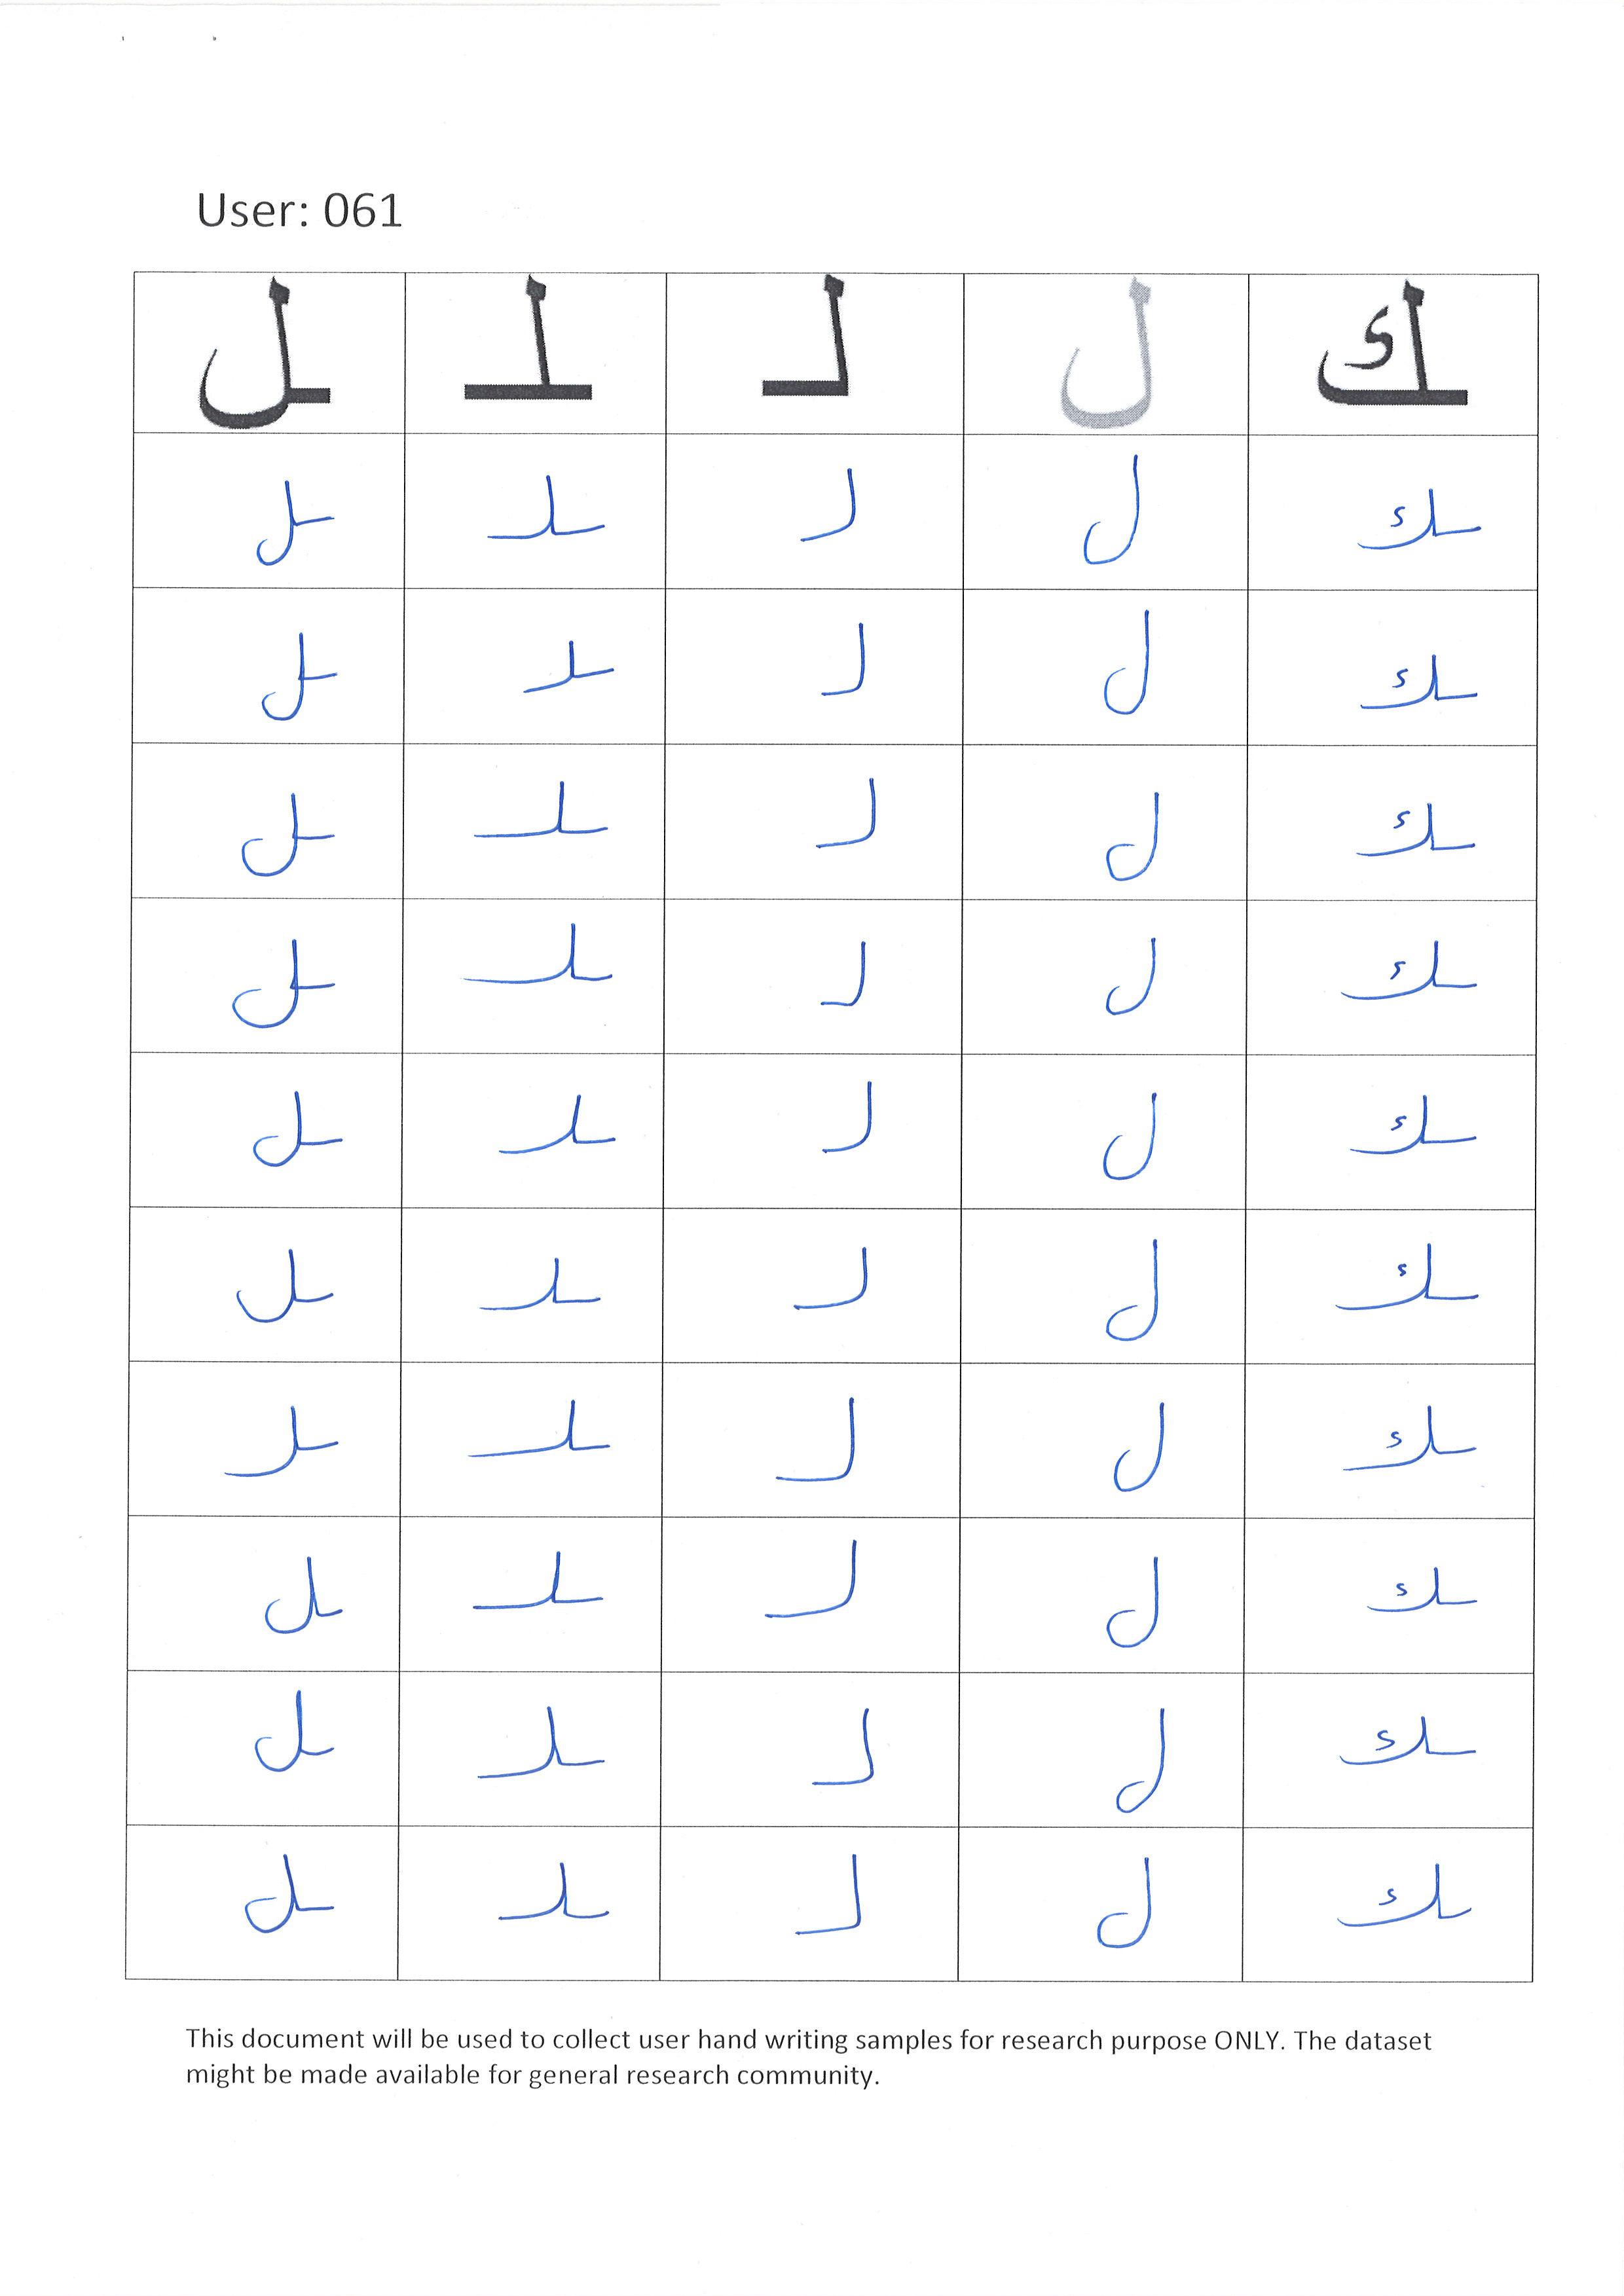 User: 061
ـل ـلـ لـ ل ـك
ـل ـلـ لـ ل ـك
ـل ـلـ لـ ل ـك
ـل ـلـ لـ ل ـك
ـل ـلـ لـ ل ـك
ـل ـلـ لـ ل ـك
ـل ـلـ لـ ل ـك
ـل ـلـ لـ ل ـك
ـل ـلـ لـ ل ـك
ـل ـلـ لـ ل ـك
ـل ـلـ لـ ل ـك
This document will be used to collect user hand writing samples for research purpose ONLY. The dataset
might be made available for general research community.